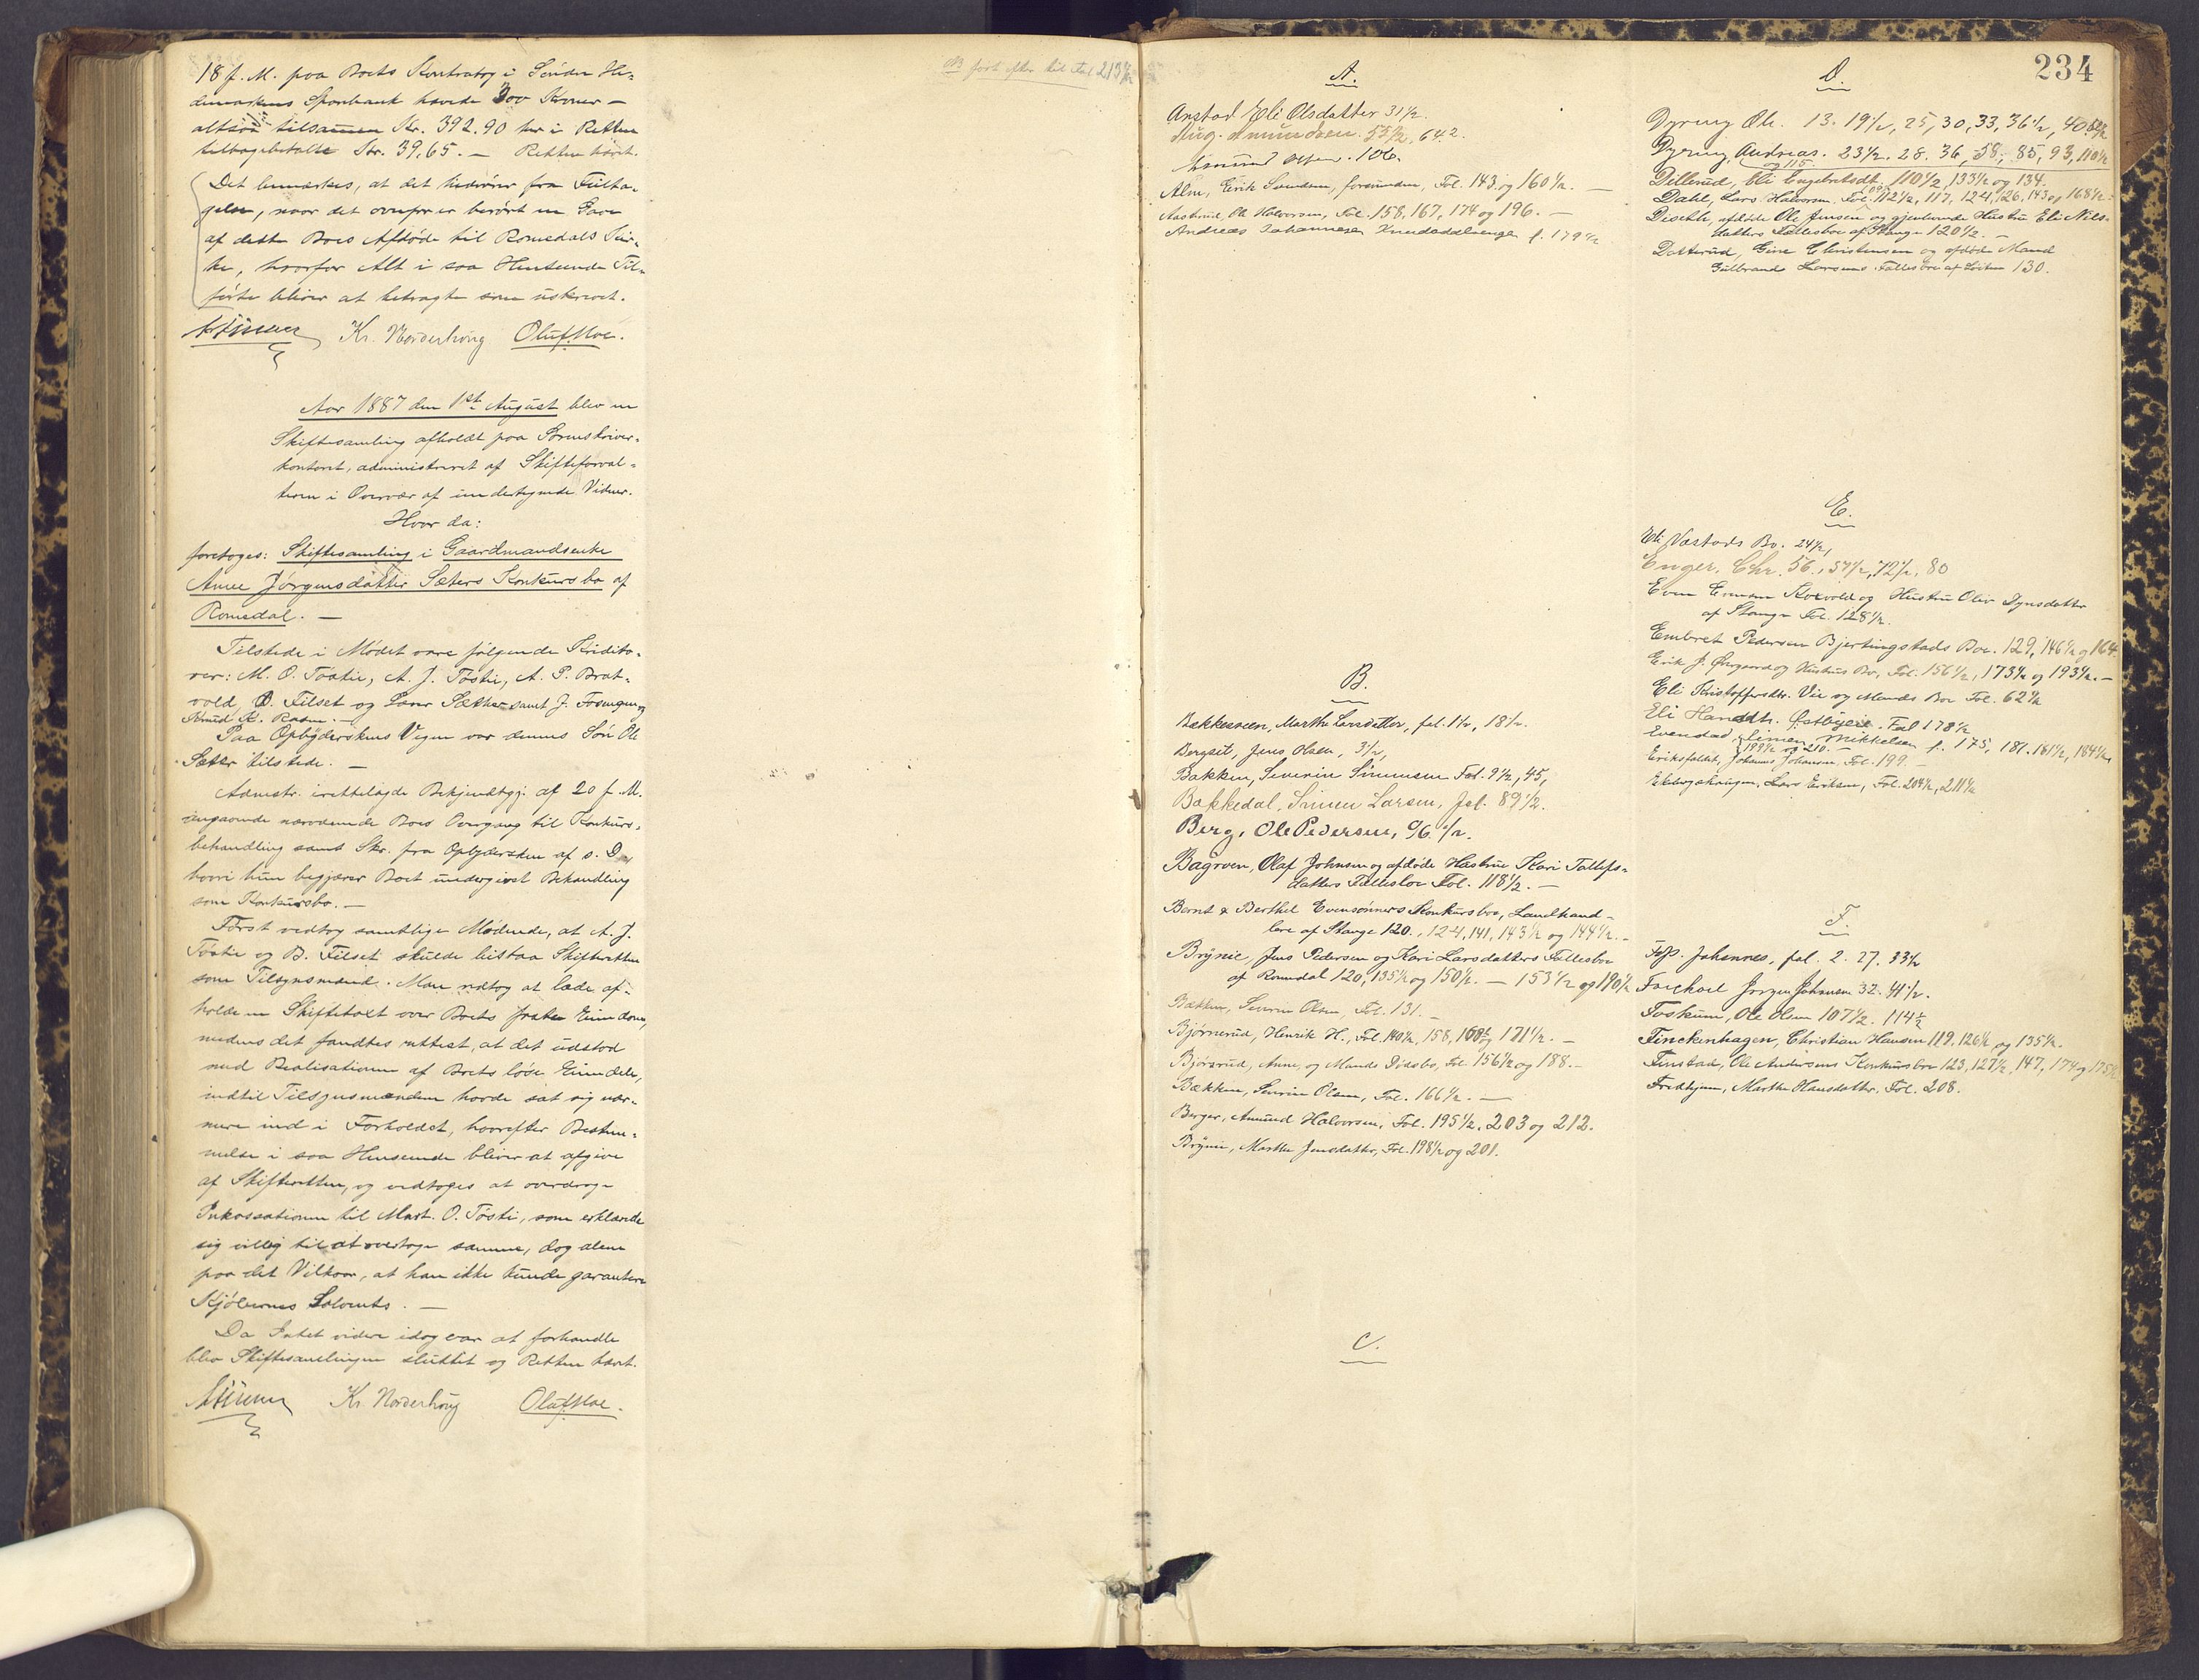 18 f. M. paa Boets Kontrabog i Søndre He-
demarkens Sparebank hævede 300 Kroner –
altsaa tilsammen Kr. 392.90 her i Retten
tilbagebetalte Kr. 39,65. – Retten hævet.
Det bemærkes, at det hidrører fra Feilta-
gelse, naar det ovenfor er berørt en Gave
af dette Boes Afdøde til Romedals Kir-
ke, hvorfor Alt i saa Henseende Til-
førte bliver at betragte som uskrevet.
Kr. Norderhoug Oluf Moe.
Aar 1887 den 1ste August blev en
Skiftesamling afholdt paa Sorenskriver-
kontoret, administreret af Skifteforval-
teren i Overvær af undertegnede Vidner.
Hvor da:
foretoges: Skiftesamling i Gaardmandsenke
Anne Jørgensdatter Sæters Konkursbo af
Romedal. –
Tilstede i Mødet vare følgende Kredito-
rer: M. O. Tøstie, A. J. Tøstie, A. P. Brat-
vold, B. Filset og Lars Sæther samt J. Fosengen og
Knud K. Rosen. –
Paa Opbyderskens Vegne var dennes Søn Ole
Sæter tilstede. –
Admstr. irettelagde Bekjendtgj. af 20 f. M.
angaaende nærværende Boes Overgang til Konkurs-
behandling samt Skr. fra Opbydersken af s. D.
hvori hun begjærer Boet undergivet Behandling
som Konkursbo. –
Først vedtog samtlige Mødende, at A. J.
Tøstie og B. Filset skulde bistaa Skifteretten
som Tilsynsmænd. Man vedtog at lade af-
holde en Skiftetaxt over Boets faste Eiendom,
medens det fandtes rettest, at det udstod
med Realisationen af Boets løse Eiendele,
indtil Tilsynsmændene havde sat sig nær-
mere ind i Forholdet, hvorefter Bestem-
melse i saa Henseende bliver at afgive
af Skifteretten, og vedtoges at overdrage
Inkassationen til Mart. O. Tøsti, som erklærede
sig villig til at overtage samme, dog alene
paa det Vilkaar, at han ikke kunde garantere
Kjøbernes Solvents. –
Da Intet videre idag var at forhandle
blev Skiftesamlingen sluttet og Retten hævet.
Kr. Norderhoug Oluf Moe.
NB fort efter til Fol 213 1/2
234
A.
Anstad Eli Olsdatter 31 1/2.
Aug. Amundsen. 55 1/2, 64 2.
Amund Olsen. 106.
Alm, Eirik Svendsen, forsvunden, Fol. 143 og 160 1/2. –
Aasterud, Ole Halvorsen, Fol. 158, 167, 174 og 196. –
Andreas Johannesen Knudsdalsenge f. 179 1/2
B.
Bækkeveen, Marthe Larsdatter, fol. 1 1/2, 18 1/2.
Bergset, Jens Olsen, 3 1/2,
Bakken, Severin Simensen Fol. 9 1/2, 45,
Bakkedal, Simen Larsen, Fol. 89 1/2.
Berg, Ole Pedersen, 96 1/2.
Bagroen, Olaf Johnsen og afdøde Hustrue Kari Tollefs-
datters Fællesbo Fol. 118 1/2. –
Bernt & Berthel Evensønners Konkursbo, Landhand-
lere af Stange 120., 124, 141, 143 1/2 og 144 1/2. –
Brynie, Jens Pedersen og Kari Larsdatters Fællesbo
af Romedal 120, 135 1/2 og 150 1/2. – 153 1/2 og 190 1/2
Bækken, Severin Olsen, Fol. 131. –
Bjørnerud, Henrik H., Fol. 140 1/2, 158, 168 1/2 171 1/2. –
Bjørsrud, Anne, og Mands Dødsbo, Fol. 156 1/2 og 188. –
Bækken, Severin Olsen, Fol. 166 1/2. –
Berger, Amund Halvorsen, Fol. 195 1/2, 203 og 212.
Brynie, Marthe Jensdatter, Fol. 198 1/2 og 201.
C.
D.
Dyring Ole. 13. 19 1/2, 25, 30, 33, 36 1/2, 40
Dyring, Andreas. 23 1/2. 28. 36, 58, 85, 93, 110 1/2
og 115
Dillerud, Eli Engebretsdt. 110 1/2, 133 1/2 og 134.
Dahl, Lars Halvorsen, Fol. 112 1/2, 117, 124, 126, 143 og 168 1/2 –
Diseth, afdøde Ole Jensen og gjenlevende Hustru Eli Nils-
datters Fællesbo af Stange 120 1/2. –
Dotterud, Gine Christensen og afdøde Mand
Gulbrand Larsens Fællesbo af Løiten 130.
E.
Eli Væstads Bo. 24 1/2,
Enger, Chr. 56, 57 1/2, 72 1/2, 80
Even Evensen Koxvold og Hustru Oliv Dynsdatter
af Stange Fol. 128 1/2.
Embret Pedersen Bjertingstads Bo. 129, 146 1/2 og 164.
Erik J. Ørgaard og Hustrus Bo, Fol. 156 1/2, 173 1/2 og 193 1/2. –
Eli Kristoffersdtr. Vie og Mands Bo Fol. 62 1/2
Eli Hansdtr. Østbyeie. Fol 178 1/2
Evenstad, Simen Mikkelsen f. 175, 181. 181 1/2, 184 1/2,
199 1/2 og 210. –
Eriksfaldet, Johannes Johansen, Fol. 199. –
Ekebergshaugen, Lars Eriksen, Fol. 204 1/2, 211 1/2
F.
Johannes, fol. 2. 27. 33 1/2
Jørgen Johnsen 32. 41 1/2.
Foskum, Ole Olsen 107 1/2. 114 1/2
Finckenhagen, Christian Hansen 119. 126 1/2 og 135 1/2.
Finstad, Ole Andersens Konkursbo 123, 127 1/2, 147, 174 og 175 1/2
Fredhjem, Marthe Hansdatter, Fol. 208.